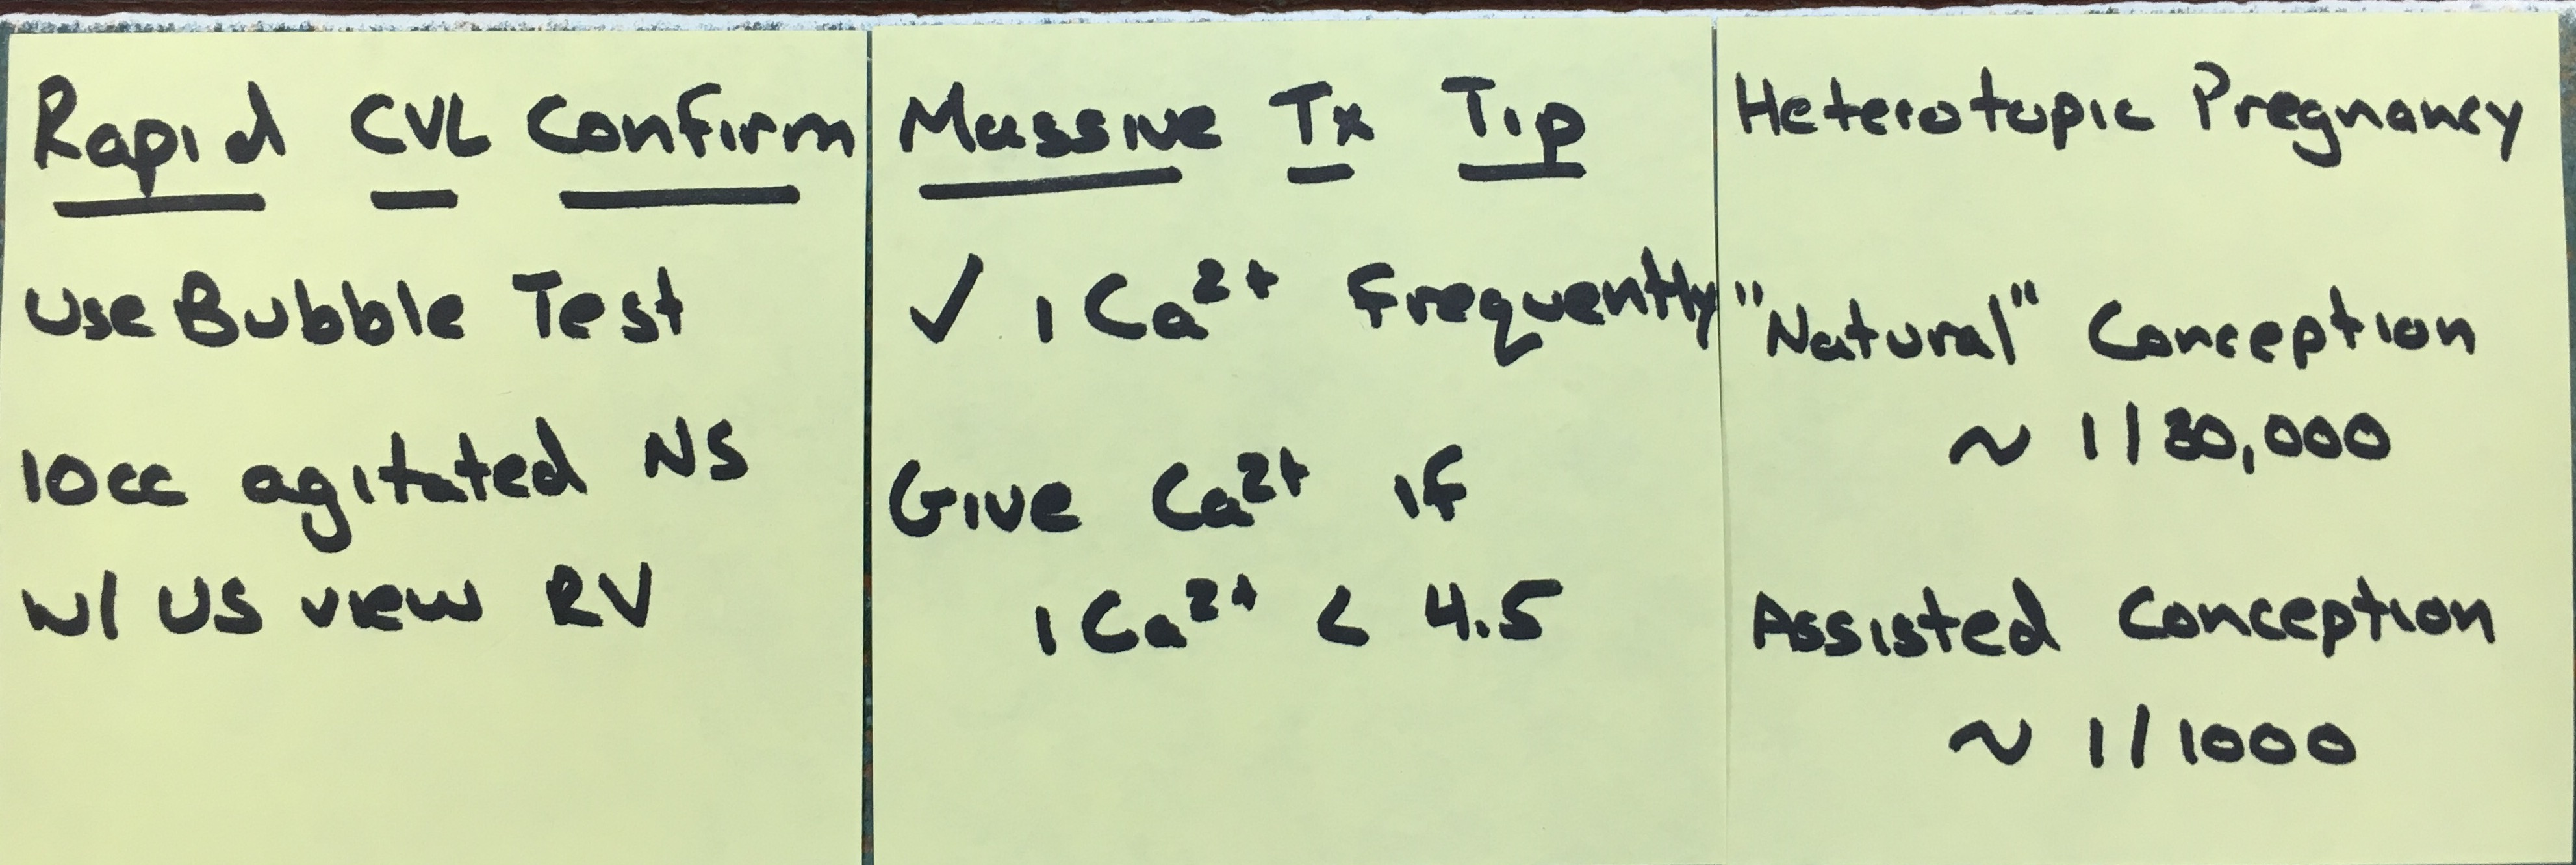 Rapid CVL Confirm
Use Bubble Test
10cc agitated NS
w/ US view RV
Massive Tx Tip
✓ iCa²⁺ frequently
Give Ca²⁺ if
iCa²⁺ < 4.5
Heterotopic Pregnancy
"Natural" Conception
~ 1/30,000
Assisted Conception
~ 1/1000